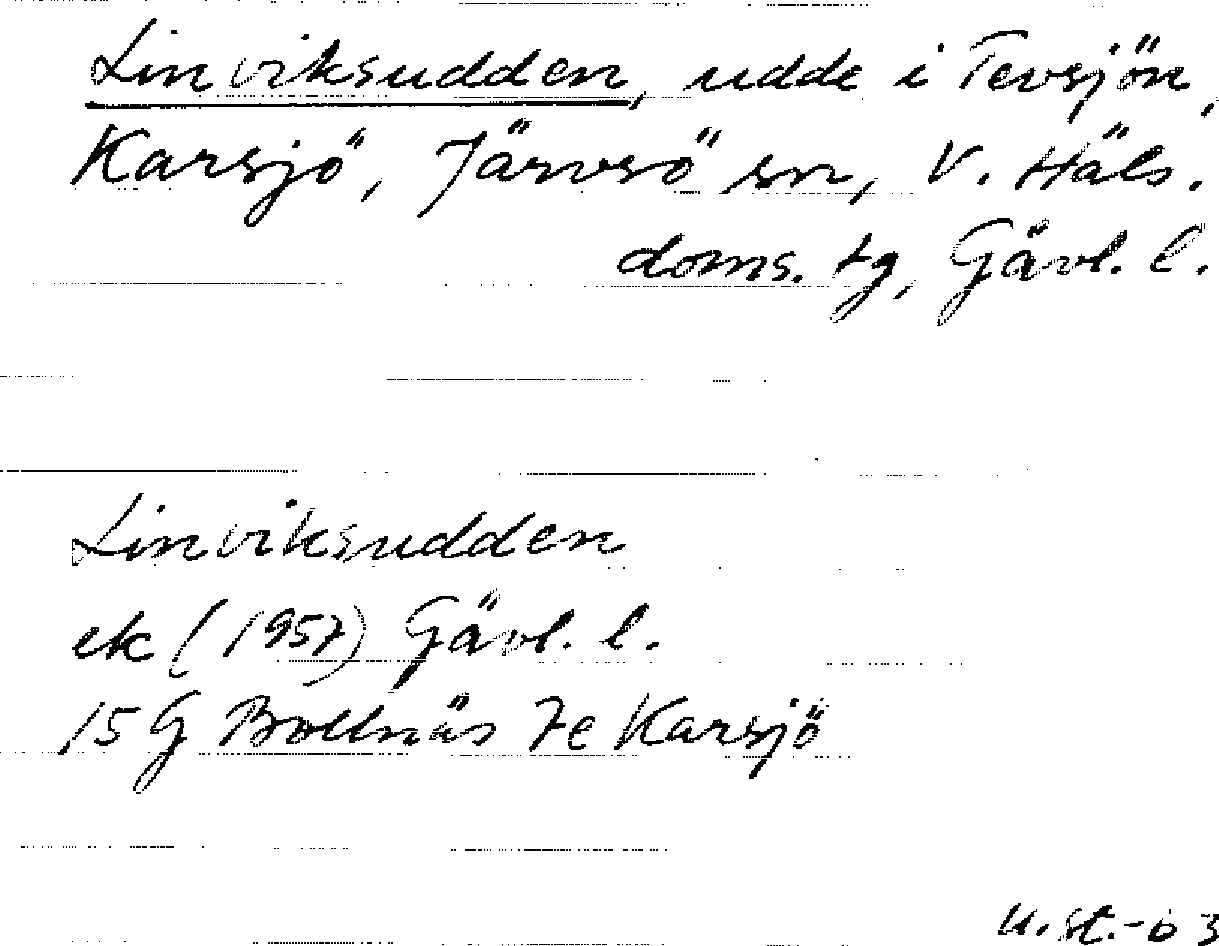 Linviksudden, udde i Tevsjön,
Karsjö, Järvsö sn, V. Häls.
doms. tg, Gävl. l.
Linviksudden
ek (1957) Gävl. l.
15G Bollnäs 7e Karsjö
U. St. -63